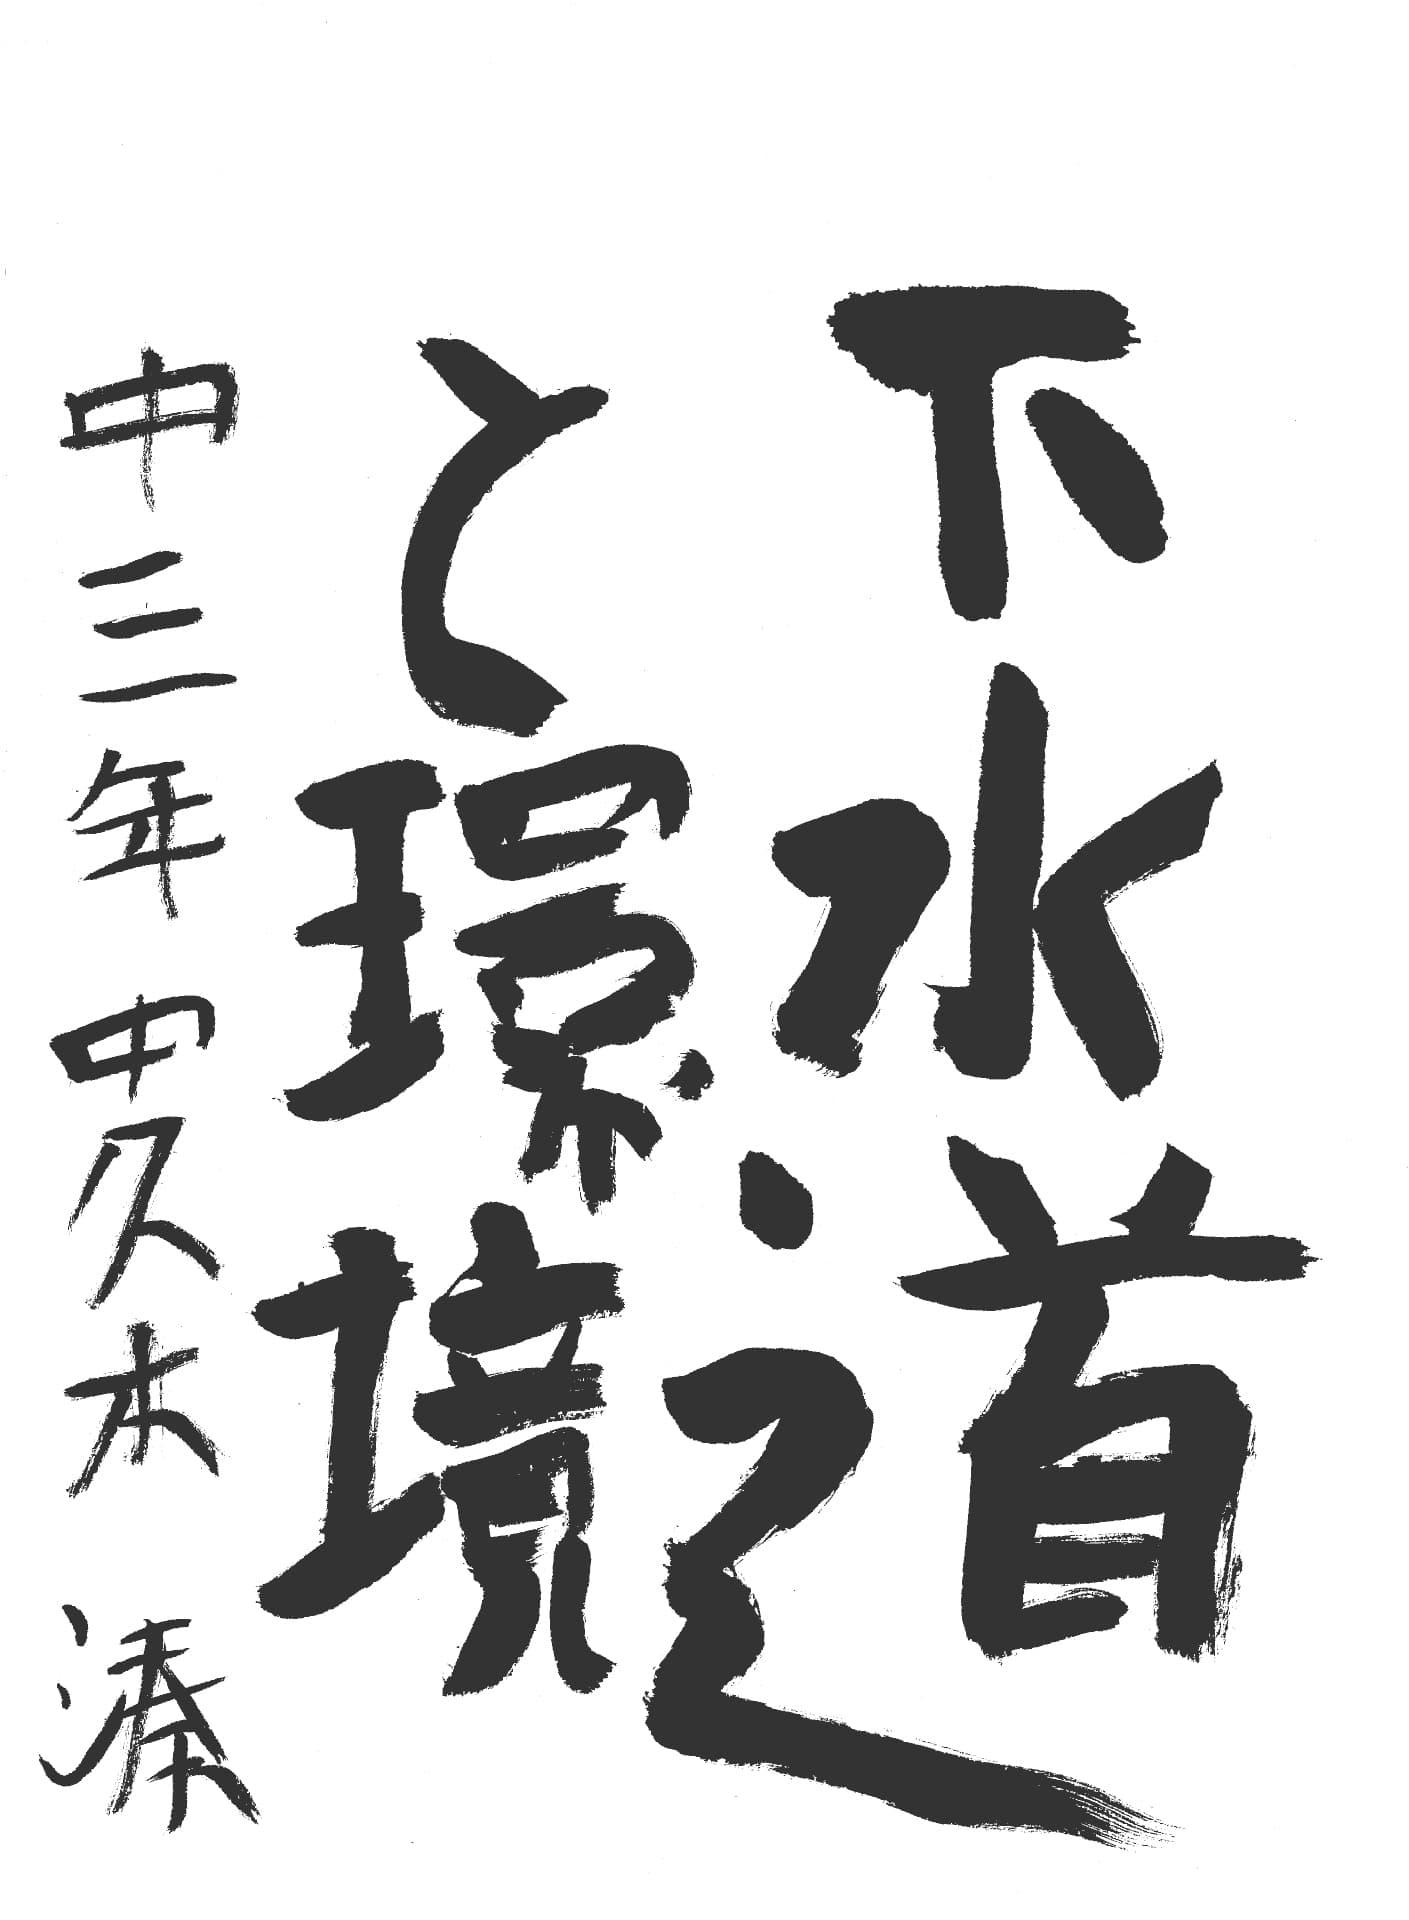 下水道
と環境
中三年 中久木 湊